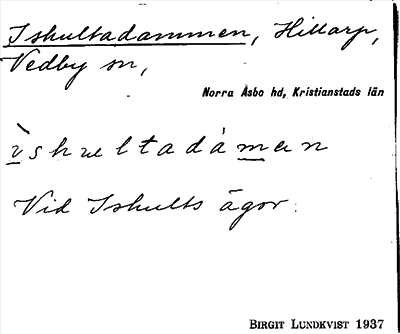 Iskultadammen, Hillarp,
Vedby sn,
Norra Åsbo hd, Kristianstads län
ı̀skultadàmen
Vid Iskults ägor.
BIRGIT LUNDKVIST 1937